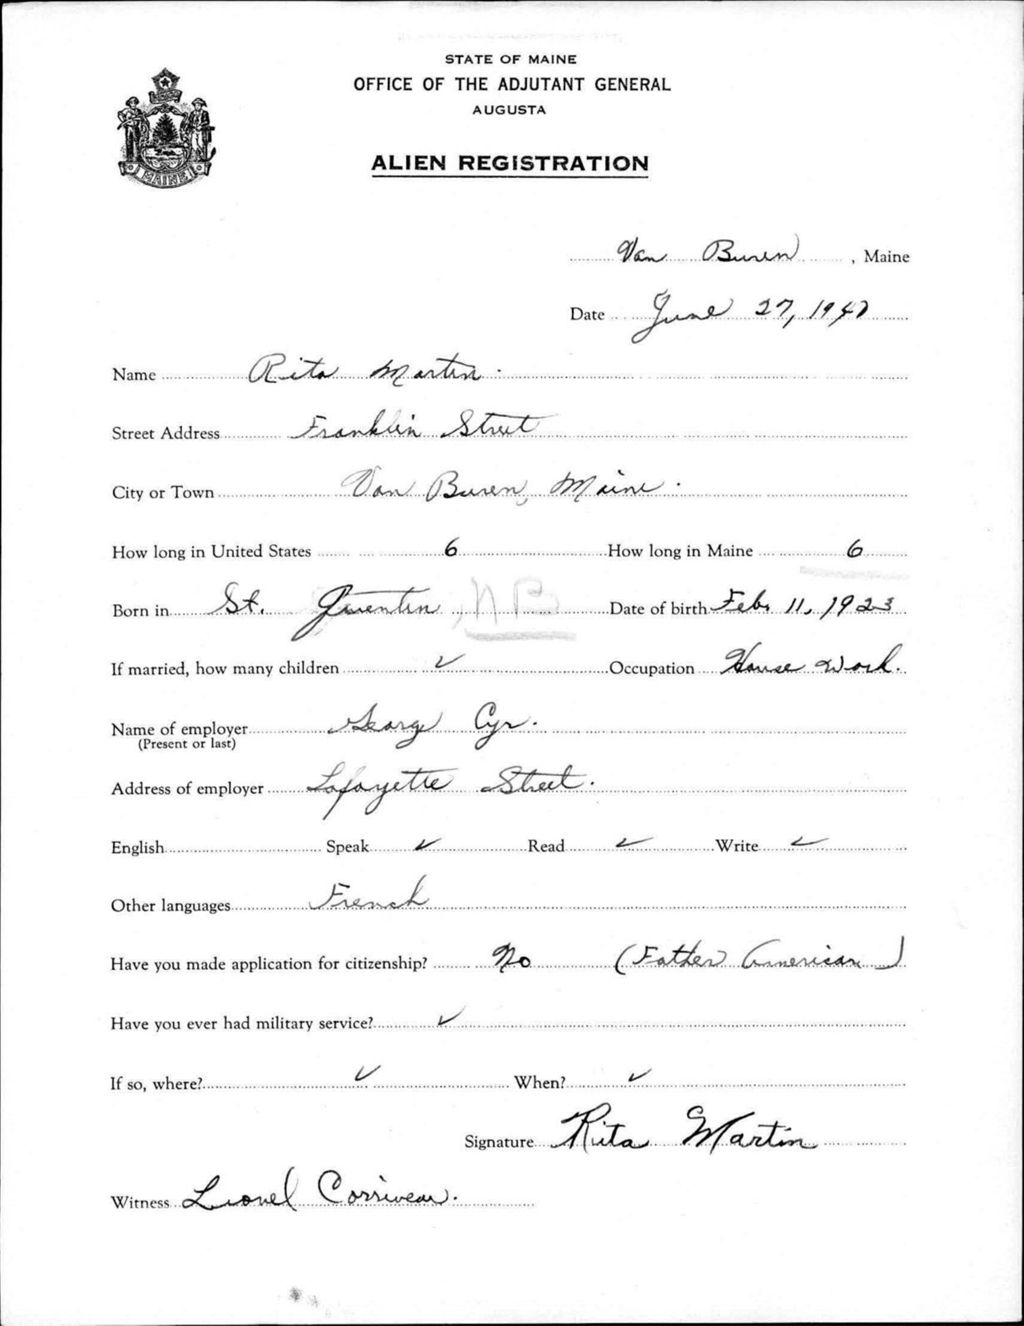 STATE OF MAINE
OFFICE OF THE ADJUTANT GENERAL
AUGUSTA
ALIEN REGISTRATION
MAINE
Van Buren, Maine
Date June 27, 1940
Name Rita Martin.
Street Address Franklin Street
City or Town Van Buren, Maine.
How long in United States 6 How long in Maine 6
Born in St. Quentin, NB Date of birth Feb. 11, 1923
If married, how many children ✓ Occupation House Work.
Name of employer George Cyr.
(Present or last)
Address of employer Lafayette Street.
English Speak ✓ Read ✓ Write ✓
Other languages French
Have you made application for citizenship? No (Father American)
Have you ever had military service? ✓
If so, where? ✓ When? ✓
Signature Rita Martin
Witness Lionel Corriveau.